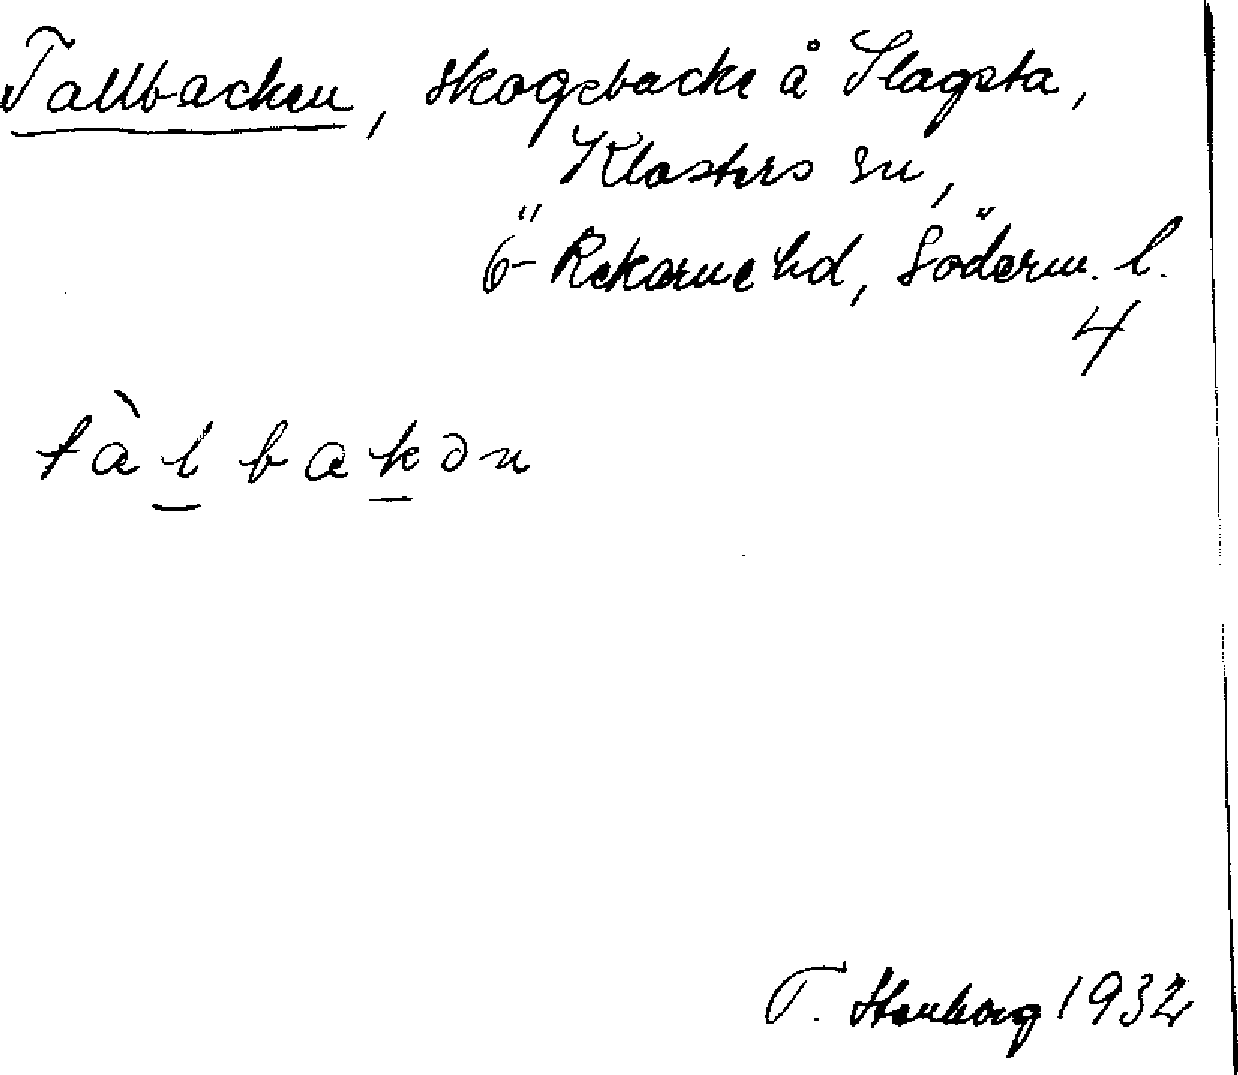 Tallbacken, skogsbacke å Slagsta,
Klosters sn,
Ö-Rekarne hd, Söderm. l.
4
tàl̠bak̠ən
T. Stenborg 1932